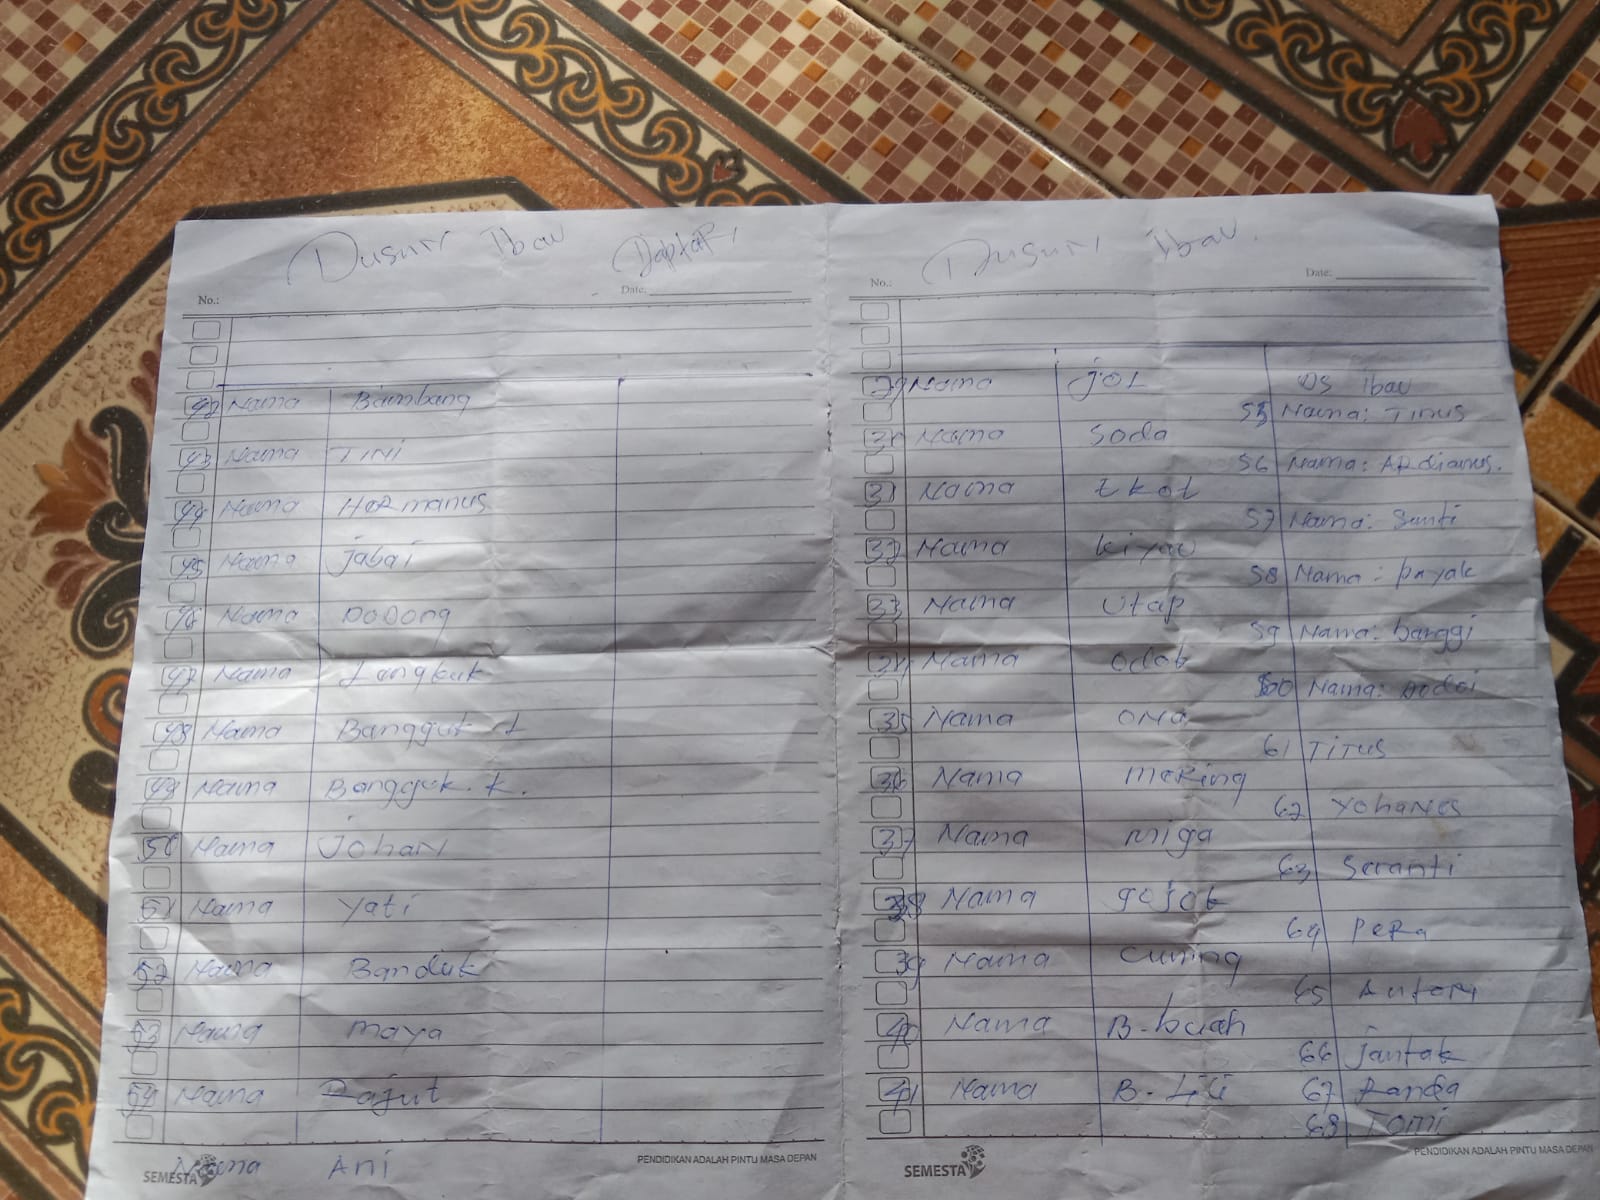 Dusun ibau Daptar
No.: Date:
42 Nama Bambang
43 Nama TiNi
44 Nama HeRmanus
45 Nama jabai
46 Nama DoDong
47 Nama Langkuk
48 Nama Bangguk 1
49 Nama Bangguk. K.
50 Nama Johan
51 Nama Yati
52 Nama Banduk
53 Nama maya
54 Nama Rajut
Nama Ani
SEMESTA
PENDIDIKAN ADALAH PINTU MASA DEPAN
Dusun ibau.
No.: Date:
29 Nama joi
30 Nama Soda
31 Nama Ekot
32 Nama kiyau
33 Nama Utap
34 Nama odok
35 Nama ONa
36 Nama meRing
37 Nama miga
38 Nama gojok
39 Nama Cuming
40 Nama B-buah
41 Nama B-Lili
DS ibau
55 Nama: Tinus
56 Nama: ARdianus.
57 Nama: Santi
58 Nama: payak
59 Nama: banggi
60 Nama: Dodoi
61 TiTus
62 YohaNes
63 Seranti
64 PeRa
65 AntoN
66 jantak
67 Randa
68 Tomi
SEMESTA
PENDIDIKAN ADALAH PINTU MASA DEPAN